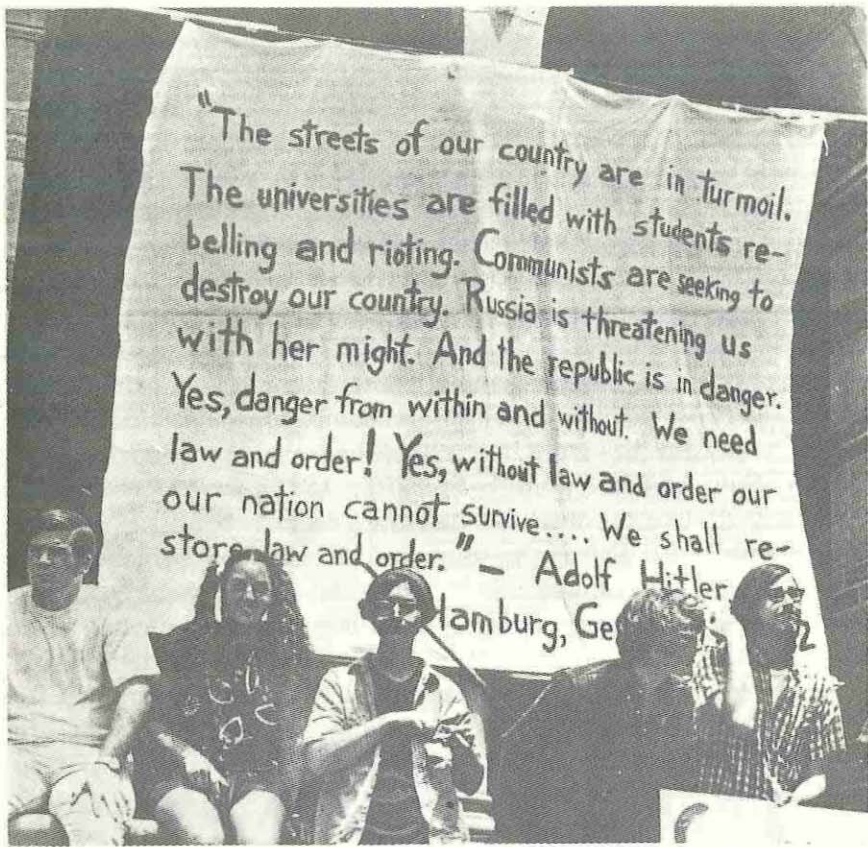 "The streets of our country are in turmoil.
The universities are filled with students re-
belling and rioting. Communists are seeking to
destroy our country. Russia is threatening us
with her might. And the republic is in danger.
Yes, danger from within and without. We need
law and order! Yes, without law and order our
our nation cannot survive.... We shall re-
store law and order." — Adolf Hitler,
Hamburg, Ge
2